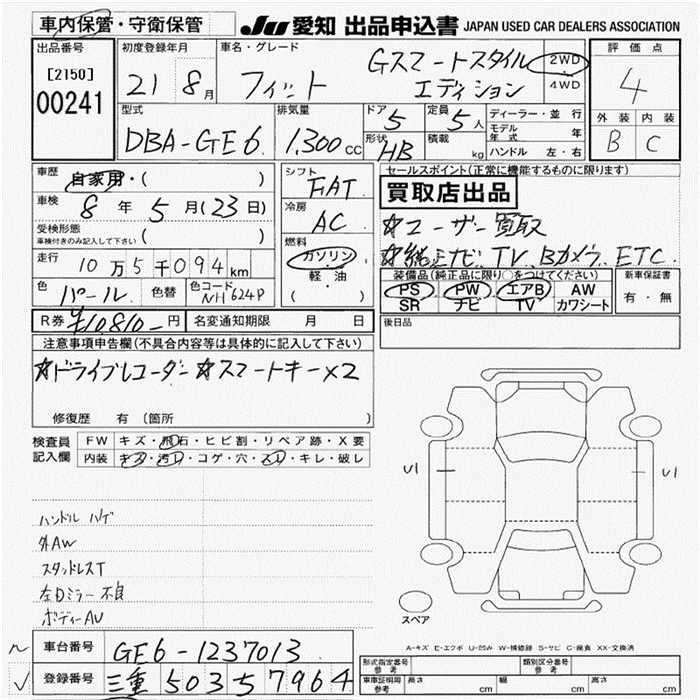 車内保管・守衛保管
JU 愛知 出品申込書 JAPAN USED CAR DEALERS ASSOCIATION
出品番号
[2150]
00241
初度登録年月
21 8月
車名・グレード
フィット
Gスマートスタイル
エディション
2WD
4WD
評価点
4
外装 内装
B C
型式
DBA-GE6
排気量
1,300cc
ドア 5
形状 HB
定員 5人
積載 kg
ディーラー・並行
モデル年式 年
ハンドル 左・右
車歴
自家用・( )
車検
8年 5月(23日)
受検形態
車検付きのみ記入して下さい ( )
走行
10万5千094km
色 パール 色替 色コード NH624P
シフト
FAT
冷房
AC
燃料
ガソリン
軽・油
( )
セールスポイント(正常に機能するものに限ります)
買取店出品
☆ユーザー買取
☆純正ナビ、TV、Bカメラ、ETC
装備品(純正品に限り○をつけてください)
PS PW エアB AW
SR ナビ TV カワシート
新車保証書
有・無
R券 ¥10,810-円 名変通知期限 月 日
後日品
注意事項申告欄(不具合内容等は具体的に記入して下さい)
☆ドライブレコーダー ☆スマートキー×2
修復歴 有 (箇所 )
検査員
記入欄
FW キズ・飛石・ヒビ割・リペア跡・X要
内装 キズ・汚れ・コゲ・穴・スレ・キレ・破レ
ハンドル ハゲ
外AW
スタッドレスT
左Dミラー不良
ボディーAU
U1
U1
スペア
A-キズ E-エクボ U-凹み W-補修跡 S-サビ C-腐食 XX-交換済
車台番号 GE6-1237013
登録番号 三重 503 57964
形式指定番号
参考
類別区分番号
参考
車車証明用
参考
長さ cm 幅 cm 高さ cm